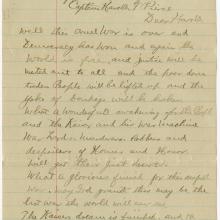 Captain Harold
Dear Harold
well this cruel War is over and
Democracy has won and again the
World is free, and justice will be
meted out to all and the poor down
troden People will be lifted up and the
Yoke of bondage will be broken
What a wonderful awakening for the People
and The Kaiser and his War Machine
War Lords Murderers Robbers and
despoilers of Homes and Honor
will get Their just deserts.
What a glorious finish for this awful
War. May God grant this may be the
last war the world will ever see
The Kaisers dream is finished, and